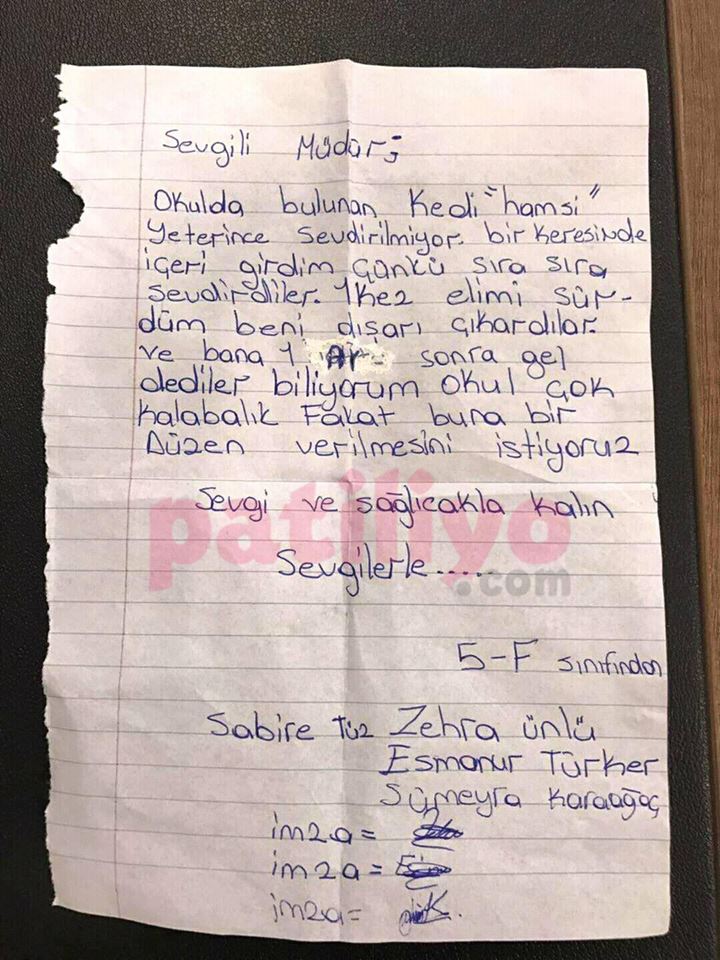 Sevgili Müdür;
Okulda bulunan Kedi "hamsi"
Yeterince Sevdirilmiyor. bir keresinde
içeri girdim çünkü sıra sıra
sevdirdiler. 1 kez elimi sür-
düm beni dışarı çıkardılar.
ve bana 1 Ay sonra gel
dediler biliyorum okul çok
kalabalık Fakat buna bir
Düzen verilmesini istiyoruz
Sevgi ve sağlıcakla kalın
patiliyo
Sevgilerle.....
.com
5-F sınıfından
Sabire Tüz Zehra ünlü
Esmanur Türker
Sümeyra Karaağaç
imza=
imza=
imza=